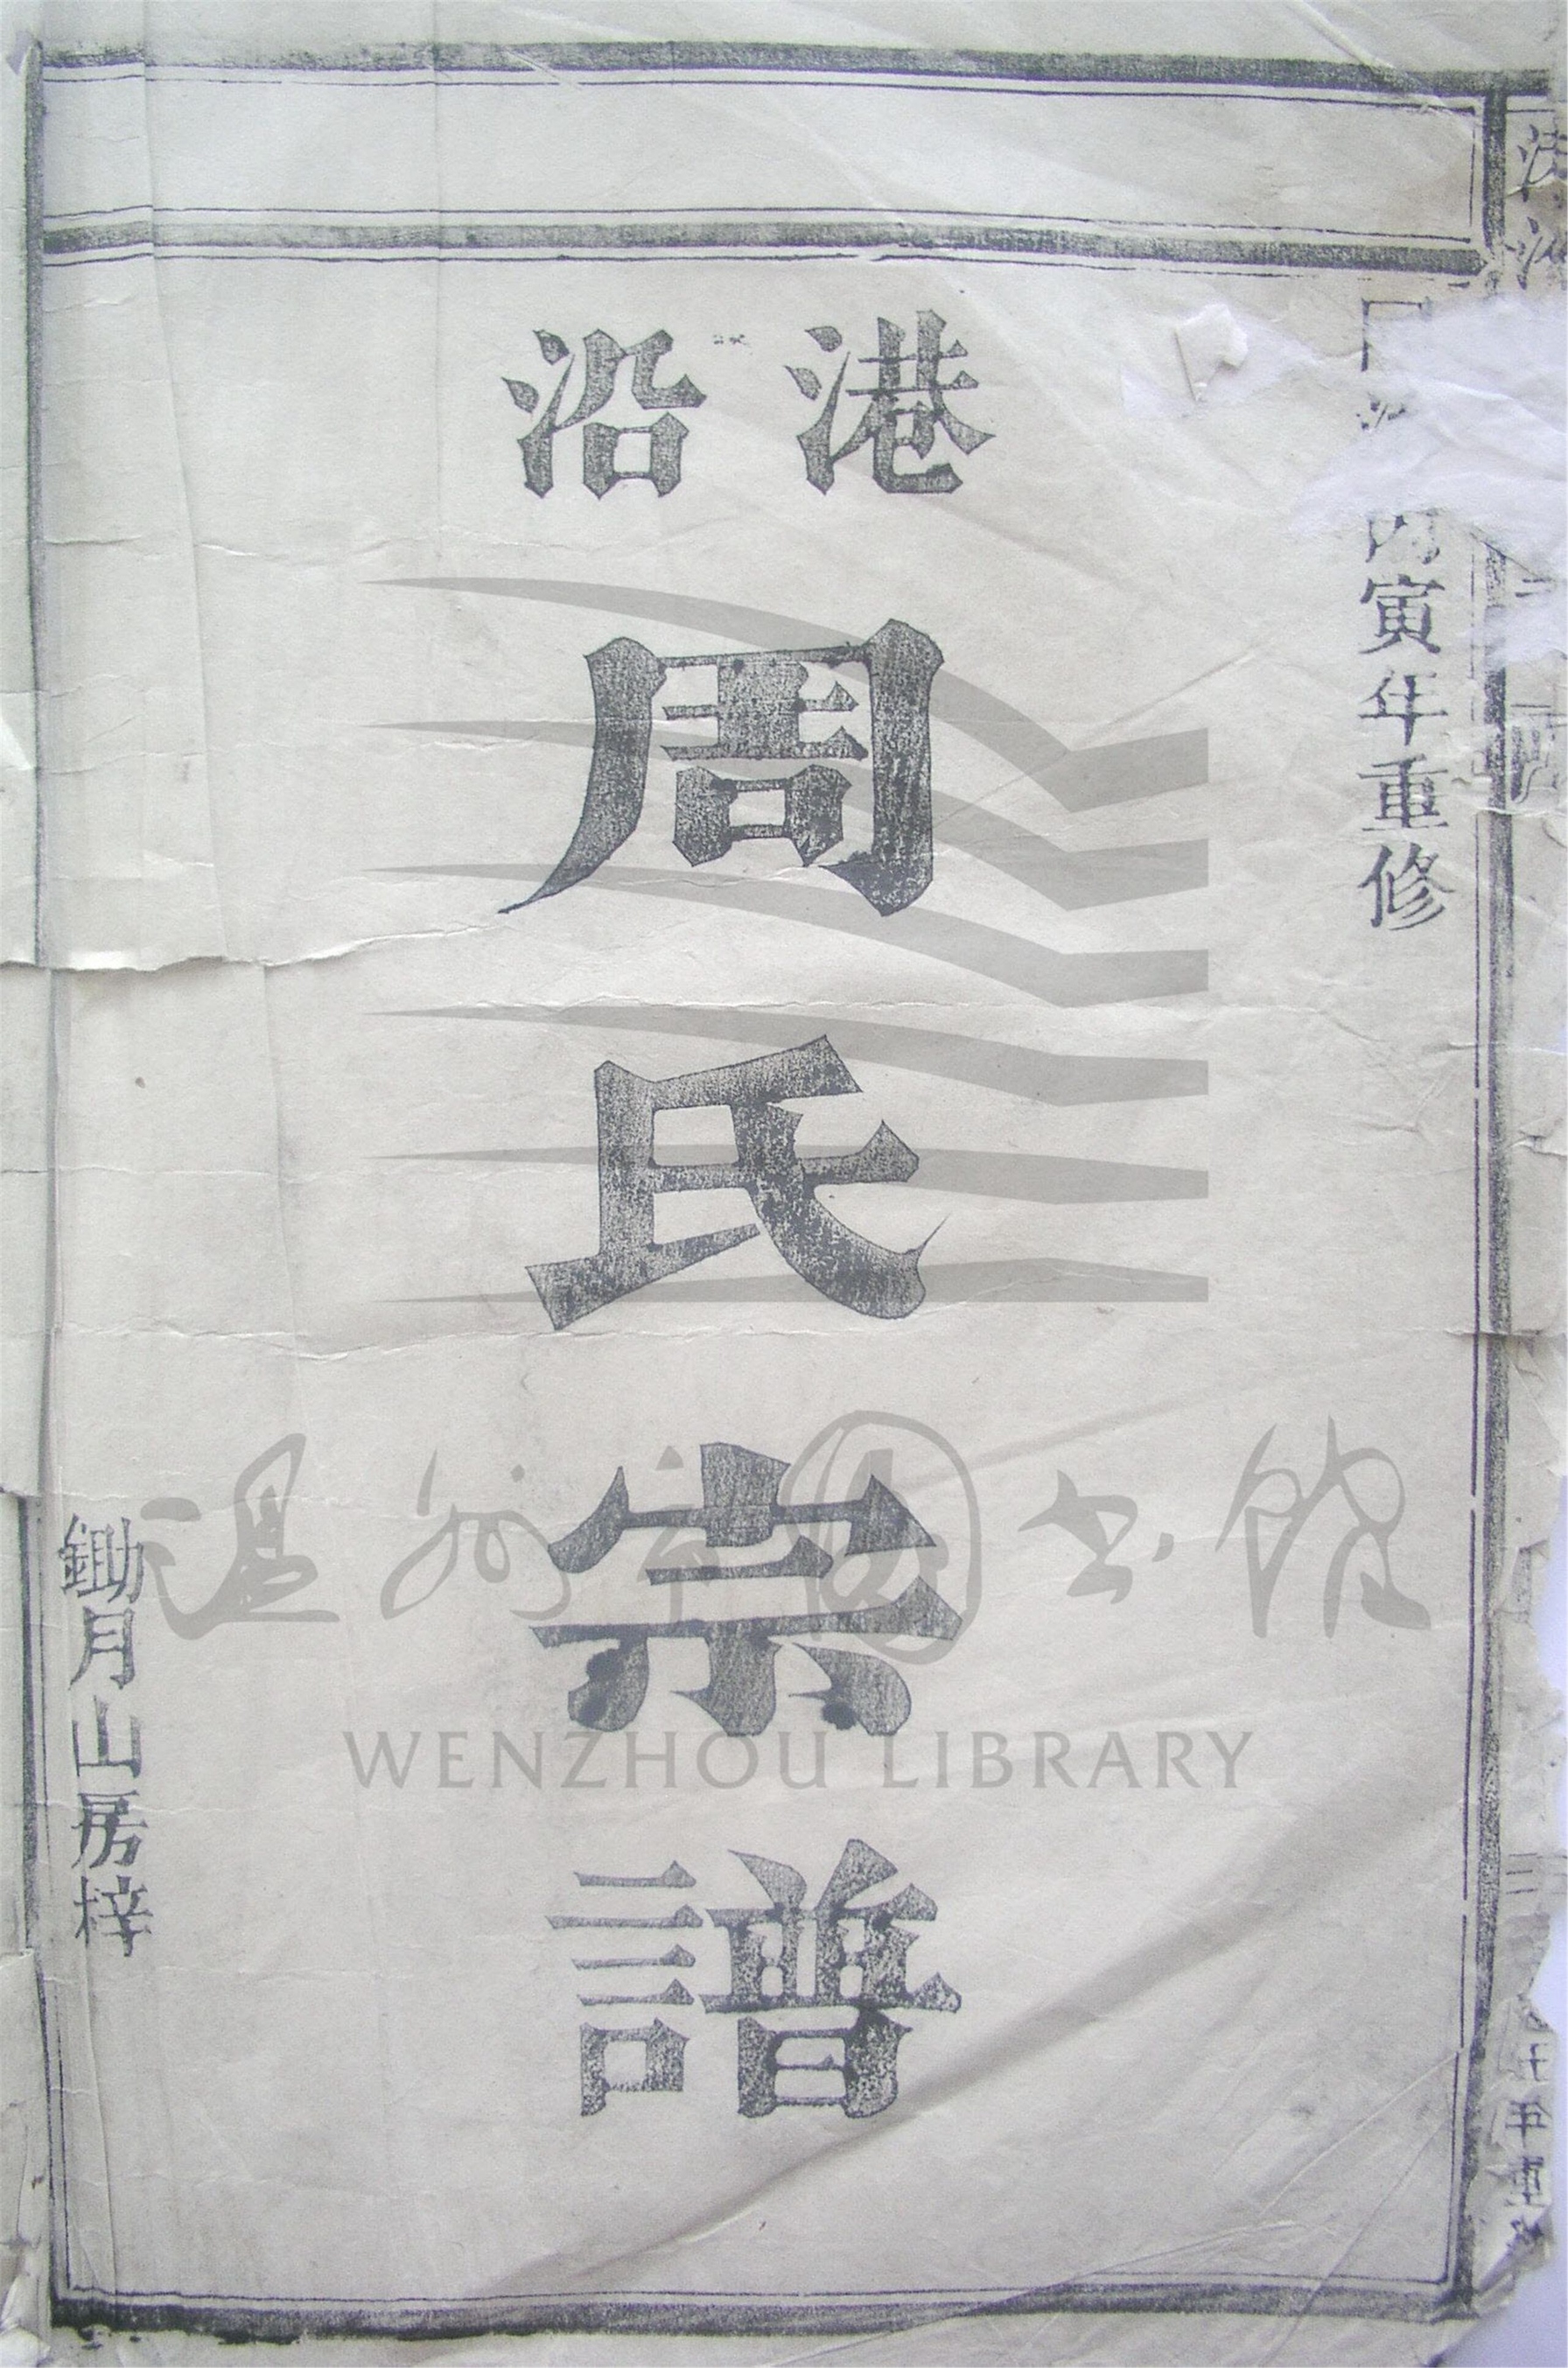 寅年重修
港沿
周氏宗譜
鋤月山房梓
温州市圖书馆
WENZHOU LIBRARY
年重